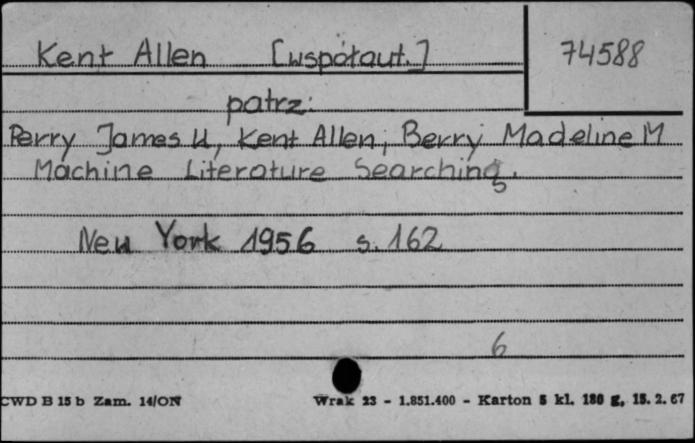 Kent Allen [współaut.] 74588
patrz:
Perry James W, Kent Allen, Berry Madeline M
Machine Literature Searching.
New York 1956 s. 162
6
CWD B 15 b Zam. 14/ON Wrak 23 - 1.851.400 - Karton 5 kl. 180 g, 15. 2. 67